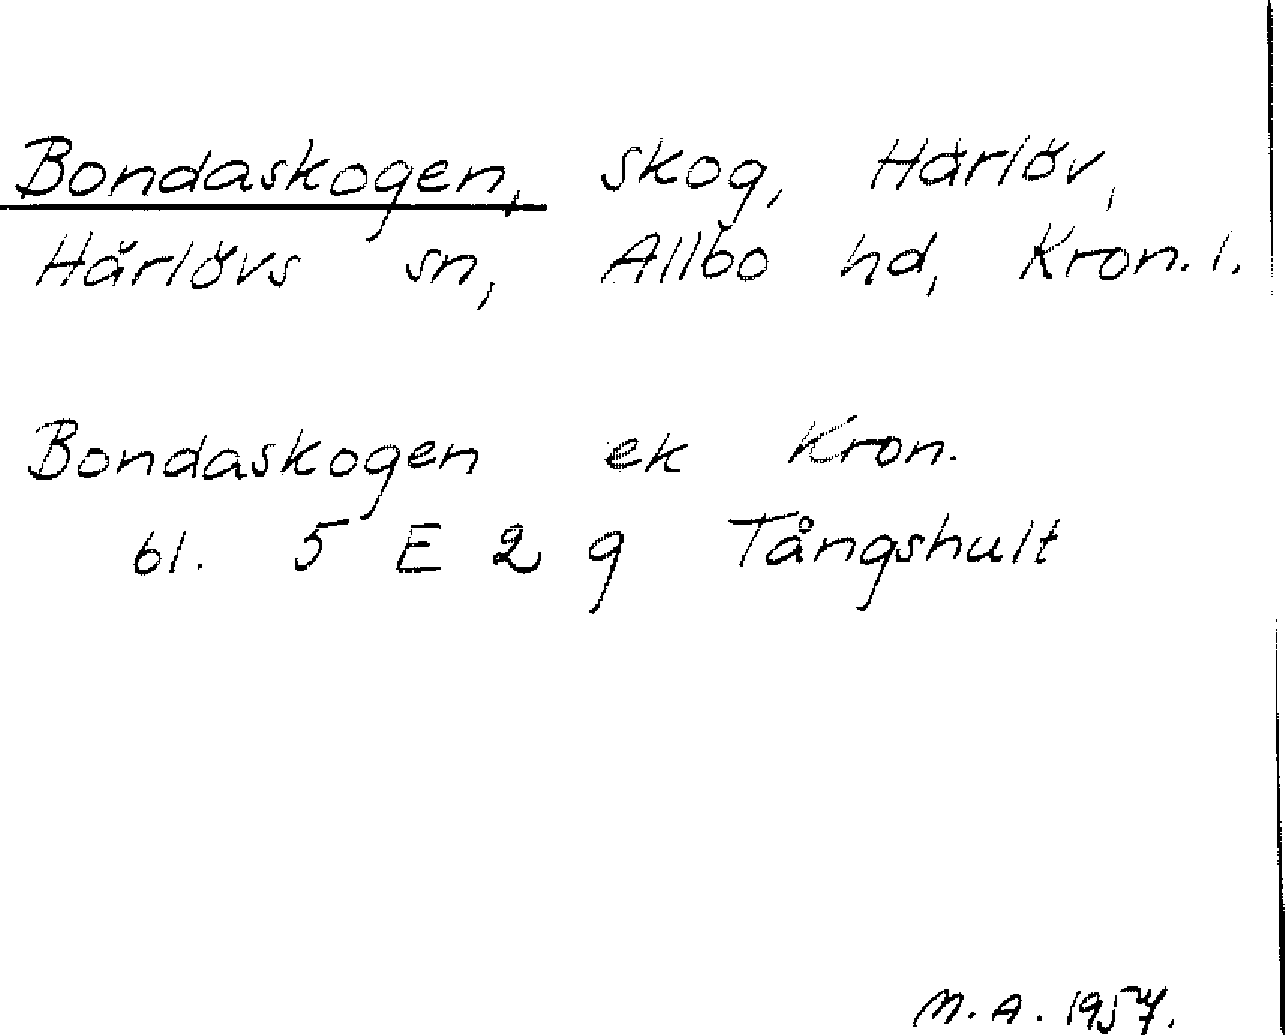 Bondaskogen, skog, Härlöv,
Härlövs sn, Allbo hd, Kron. l.
Bondaskogen ek Kron.
bl. 5 E 2 g Tångshult
M. A. 1957.